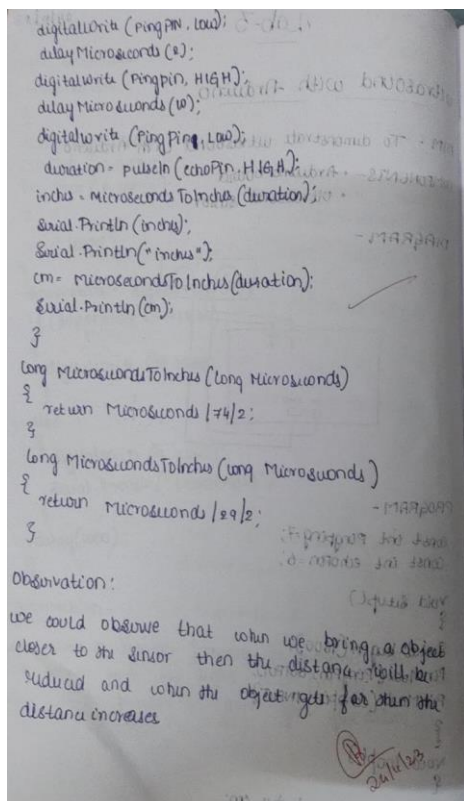 digitalWrite (PingPIN, LOW);
delay Microseconds (2);
digitalWrite (Pingpin, HIGH);
delay Microseconds (10);
digitalWrite (PingPing, LOW);
duration = pulseIn (echoPin, HIGH);
inches = microseconds To Inches (duration);
Serial.Println (inches);
Serial.Println("inches");
cm = microsecondsToInches(duration);
Serial.Println (cm);
}
Long MicrosecondsToInches (Long Microseconds)
{
return Microseconds /74/2;
}
Long MicrosecondsToInches (Long Microseconds)
{
return Microseconds /29/2;
}
Observation:
we could observe that when we bring a object
closer to the sensor then the distance will be
reduced and when the object gets far then the
distance increases